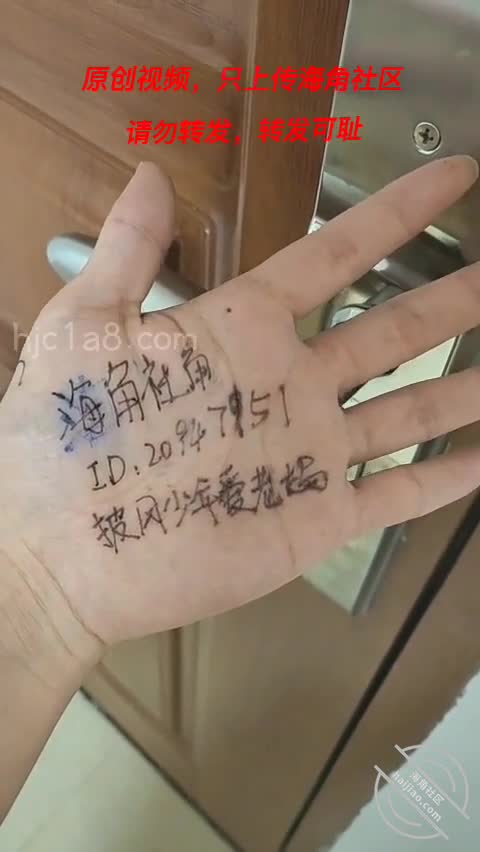 原创视频，只上传海角社区
请勿转发，转发可耻
hjc1a8.com
海角社角
ID:20947151
披风少年爱老妈
海角社区
haijiao.com